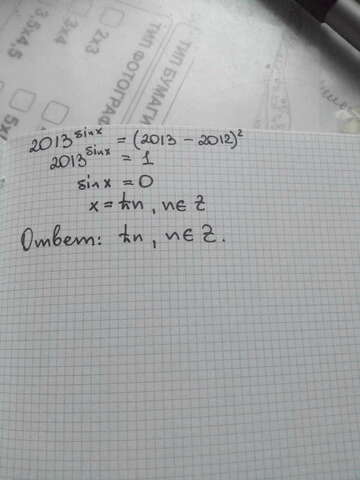 3.5x4.5
3x4
2x3
ТИП ФОТОГРАФ
ТИП БУМАГИ
2013^sinx = (2013 - 2012)²
2013^sinx = 1
sinx = 0
x = πn, n∈Z
Ответ: πn, n∈Z.